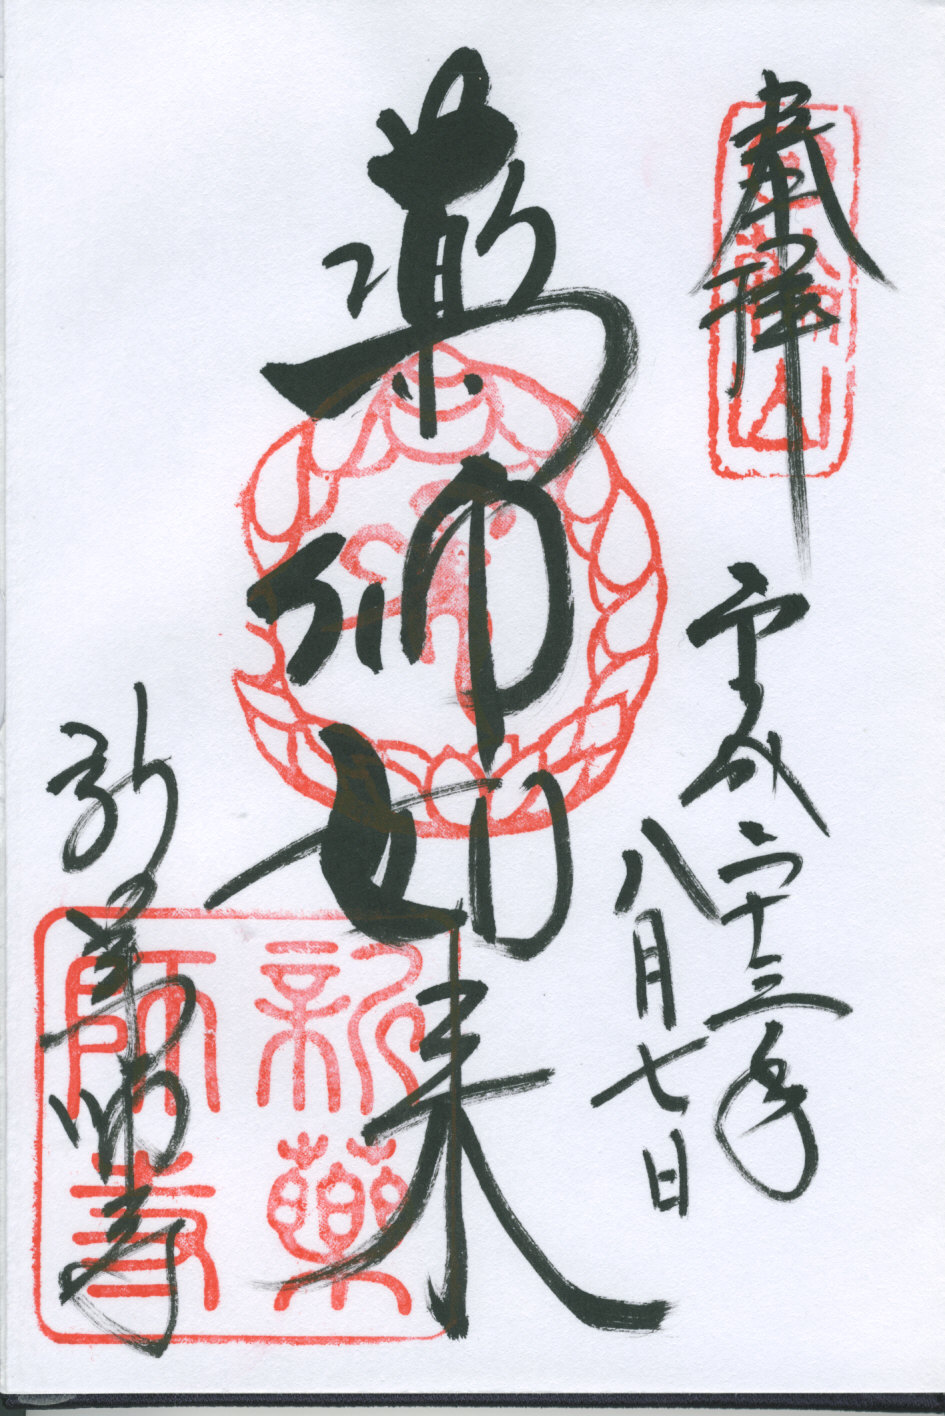 奉拝
日輪山
平成二十三年
八月七日
薬師如来
新藥
師寺
新薬師寺